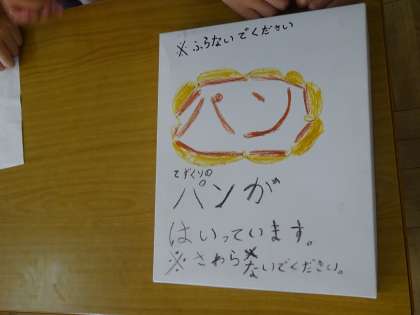 ※ふらないでください
パン
てづくりの
パンが
はいっています。
※さわらないでください。